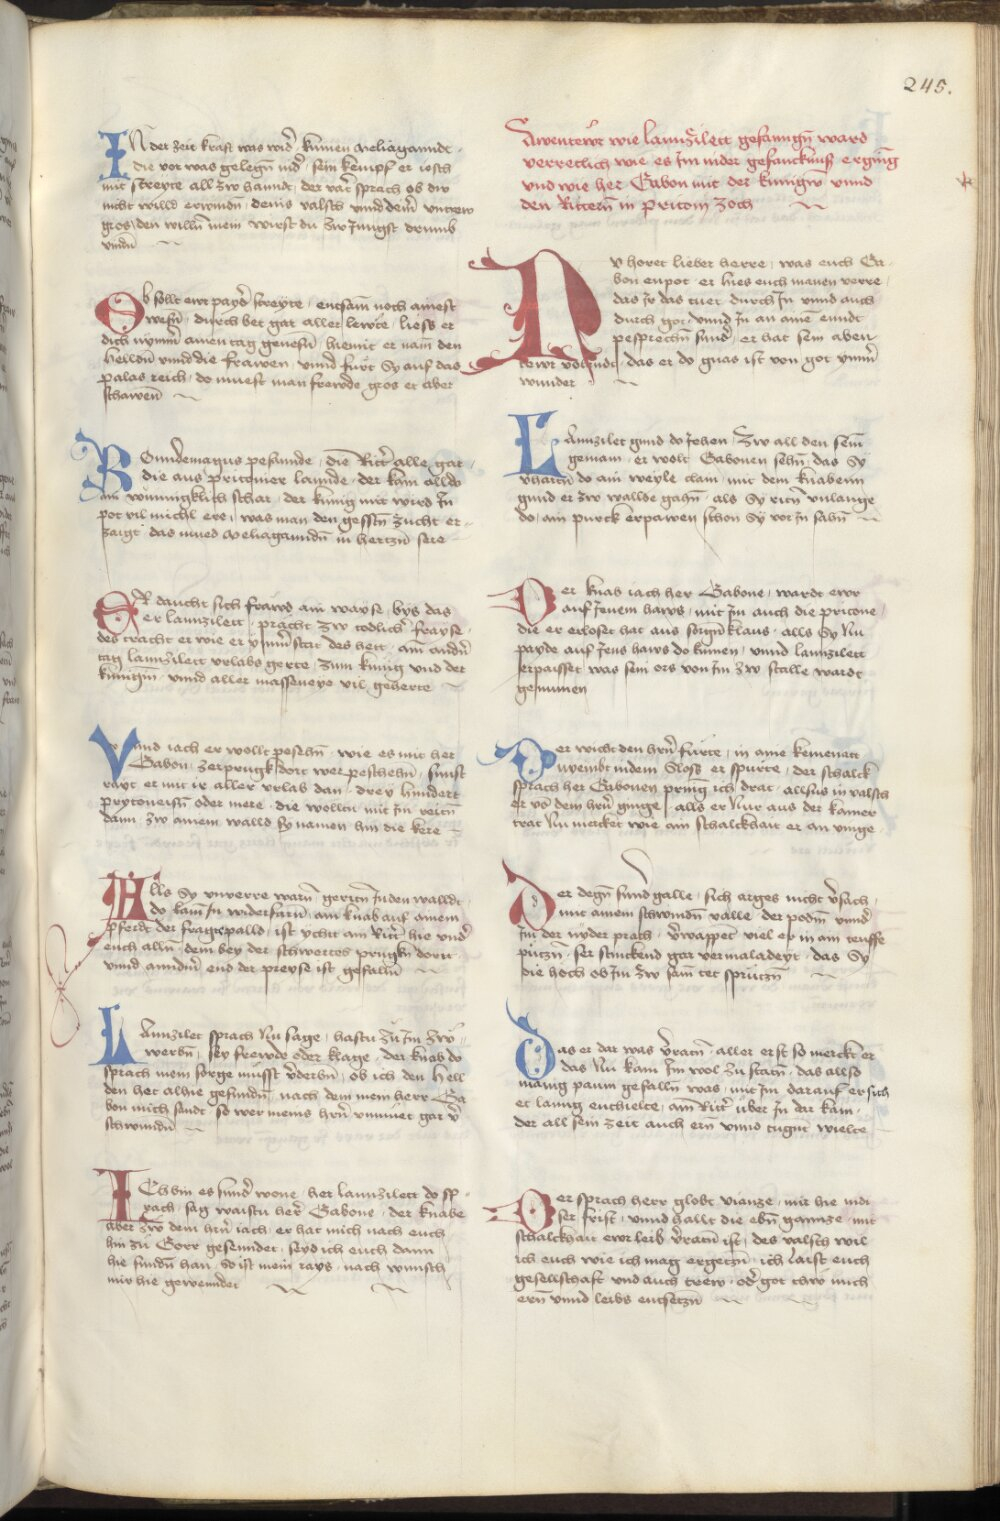 245.
IN der zeit krafft was wid̄ kumen Meliaganndt
die vor was gelegn̄ nid̄ sein kempf er iosch
mit streyte all zw hanndt der vat̄ sprach ob dw
nicht willd erwindn̄ deins valsch vnnd dem̄ vntrew
gros den willn̄ mein wirst du zw Jungst drumb
vindn̄
Ob sollt ewr payd̄ streyte entsam̄ noch ainest
wesn̄ durch bet gar aller lewte liess er
dich nymm̄ ainen tag genesn̄ hiemit er nam̄ den
helldn̄ vnnd die frawen vnnd fürt Sy auf das
palas reich do muest man frewde gros er aber
schawen̄
Bonndemagus pesannde die Ritt̄ alle gar
die aus pritoner lannde der kam alldo
ain wunnigklich schar der kunig mit wird In
pot vil michl ere was man den gesstn̄ zucht er
zaigt das mued Meliaganndn̄ in hertzn̄ sere
Er daucht sich frawd ain wayse bys das
er lannzilett pracht zw todlich̄ frayse
des tracht er wie er ymm̄ stat des hett am andn̄
tag lannzilett vrlabs gerte zum kunig vnd der
kunigin̄ vnnd aller masseneye vil geherte
Vnnd iach er wollt pesehn̄ wie es mit her
Gabon zerprugk dort wer peschehn̄ sunst
rayt er mit ir aller vrlab dan drey hundert
prytoneisn̄ oder mere die wolltn̄ mit Im reitn̄
dann zw ainem walld sy namen hin die kere
Alls Sy vnverre warn̄ geritn̄ Inden walldt
do kam In widerfarn̄ ain knab auf ainem
pferdt der fragt palld ist ycht ain Ritt̄ hie vnd̄
euch alln̄ dem bey der schwertes prugkn̄ dortt
vnnd anndn̄ end der preyse ist gefalln̄
Lannzilet sprach Nu sage hastu zu Im zwo
werbn̄ sey frewde oder klage der knab do
sprach mein sorge muesst v̄derbn̄ ob ich den hell
den het alhie gefundn̄ nach dem mein herr Ga
bon mich sandt so wer meins hrn̄ vnmuet gar v̄
schwundn̄
Ich bin es sund̄ wone her lannzilett do sp
rach sag waistu her̄ Gabone der knabe
aber zw dem hrn̄ iach er hat mich nach euch
hin zu Gorr gesenndet seyd ich euch dann
hie fundn̄ han so ist mein rays nach wunsch
mir hie gewenndet
Awentewr wie lannzilett gefanngn̄ ward
verretlich wie es Im inder gefancknuss erging
vnd wie her Gabon mit der kunigin vnnd
den Rittern̄ in priton zoch
Nv horet lieber herre was euch Ga
bon enpot er hies euch manen verre
das Ir das tuet durch In vnnd auch
durch got vnnd In an aine ennde
pesprechn̄ sund̄ er hat sein aben
tewr volendt das er do gnas ist von got ymm̄
wunder
Lannzilet gund do Jehen zw all den sein
gemain er wolt Gabonen sehn̄ das Sy
vhartn̄ do ain weyle clain mit dem knaben
gund er zw wallde gahn̄ als Sy ritn̄ vnlange
do ain purck erpawen schon Sy vor In sahn̄
Der knab iach her Gabone wardt ewr
auf Jenem haws mit Im auch die pritone
die er erloset hat aus sorgn̄ klaus alls Sy Nu
payde auf Jens haws do kumen vnnd lannzilett
erpaisset was sein ors von Im zw stalle wardt
genumen
Der wicht den hrn̄ fürte in aine kemenatt
inwembt indem Sloss er spürte der schalck
sprach her Gabonen pring ich drat allsus in valsch
er vor dem hrn̄ ginge alls er Nur aus der kamer
trat Nu mercket wie ain schalckhait er an vinge
Der degn̄ sund̄ galle sich arges nicht v̄sach
mit ainem schwindn̄ valle der podm̄ vnnd̄
Im der nyder prach v̄wappet viel er in ain teuffe
putzn̄ ser stinckend gar vermaladeyt das Sy
die hoch ob Im zw sam̄ tet sprützn̄
Das er dar was v̄ratn̄ aller erst so merckt er
das Nu kam Im wol zu statn̄ das allso
manig paum gefalln̄ was mit Im darauf er sich
er lanng enthielte ain Ritt̄ über In dar kam
der all sein zeit auch ern vnnd tugnt wielte
Der sprach herr globt vianze mir hie indi
ser frist vnnd hallt die ebn̄ gannze mit
schalckhait ewr leib v̄ratn̄ ist des valsch wil
ich euch wie ich mag ergetzn̄ ich laist euch
gesellschaft vnd auch trew od̄ got thw mich
ern̄ vnnd leibs entsetzn̄